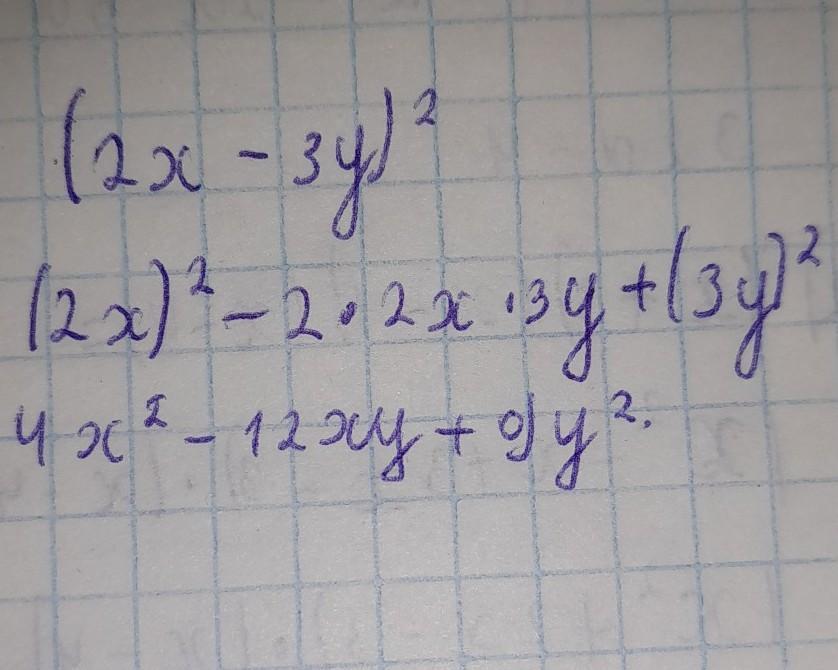 (2x - 3y)²
(2x)² - 2 · 2x · 3y + (3y)²
4x² - 12xy + 9y².